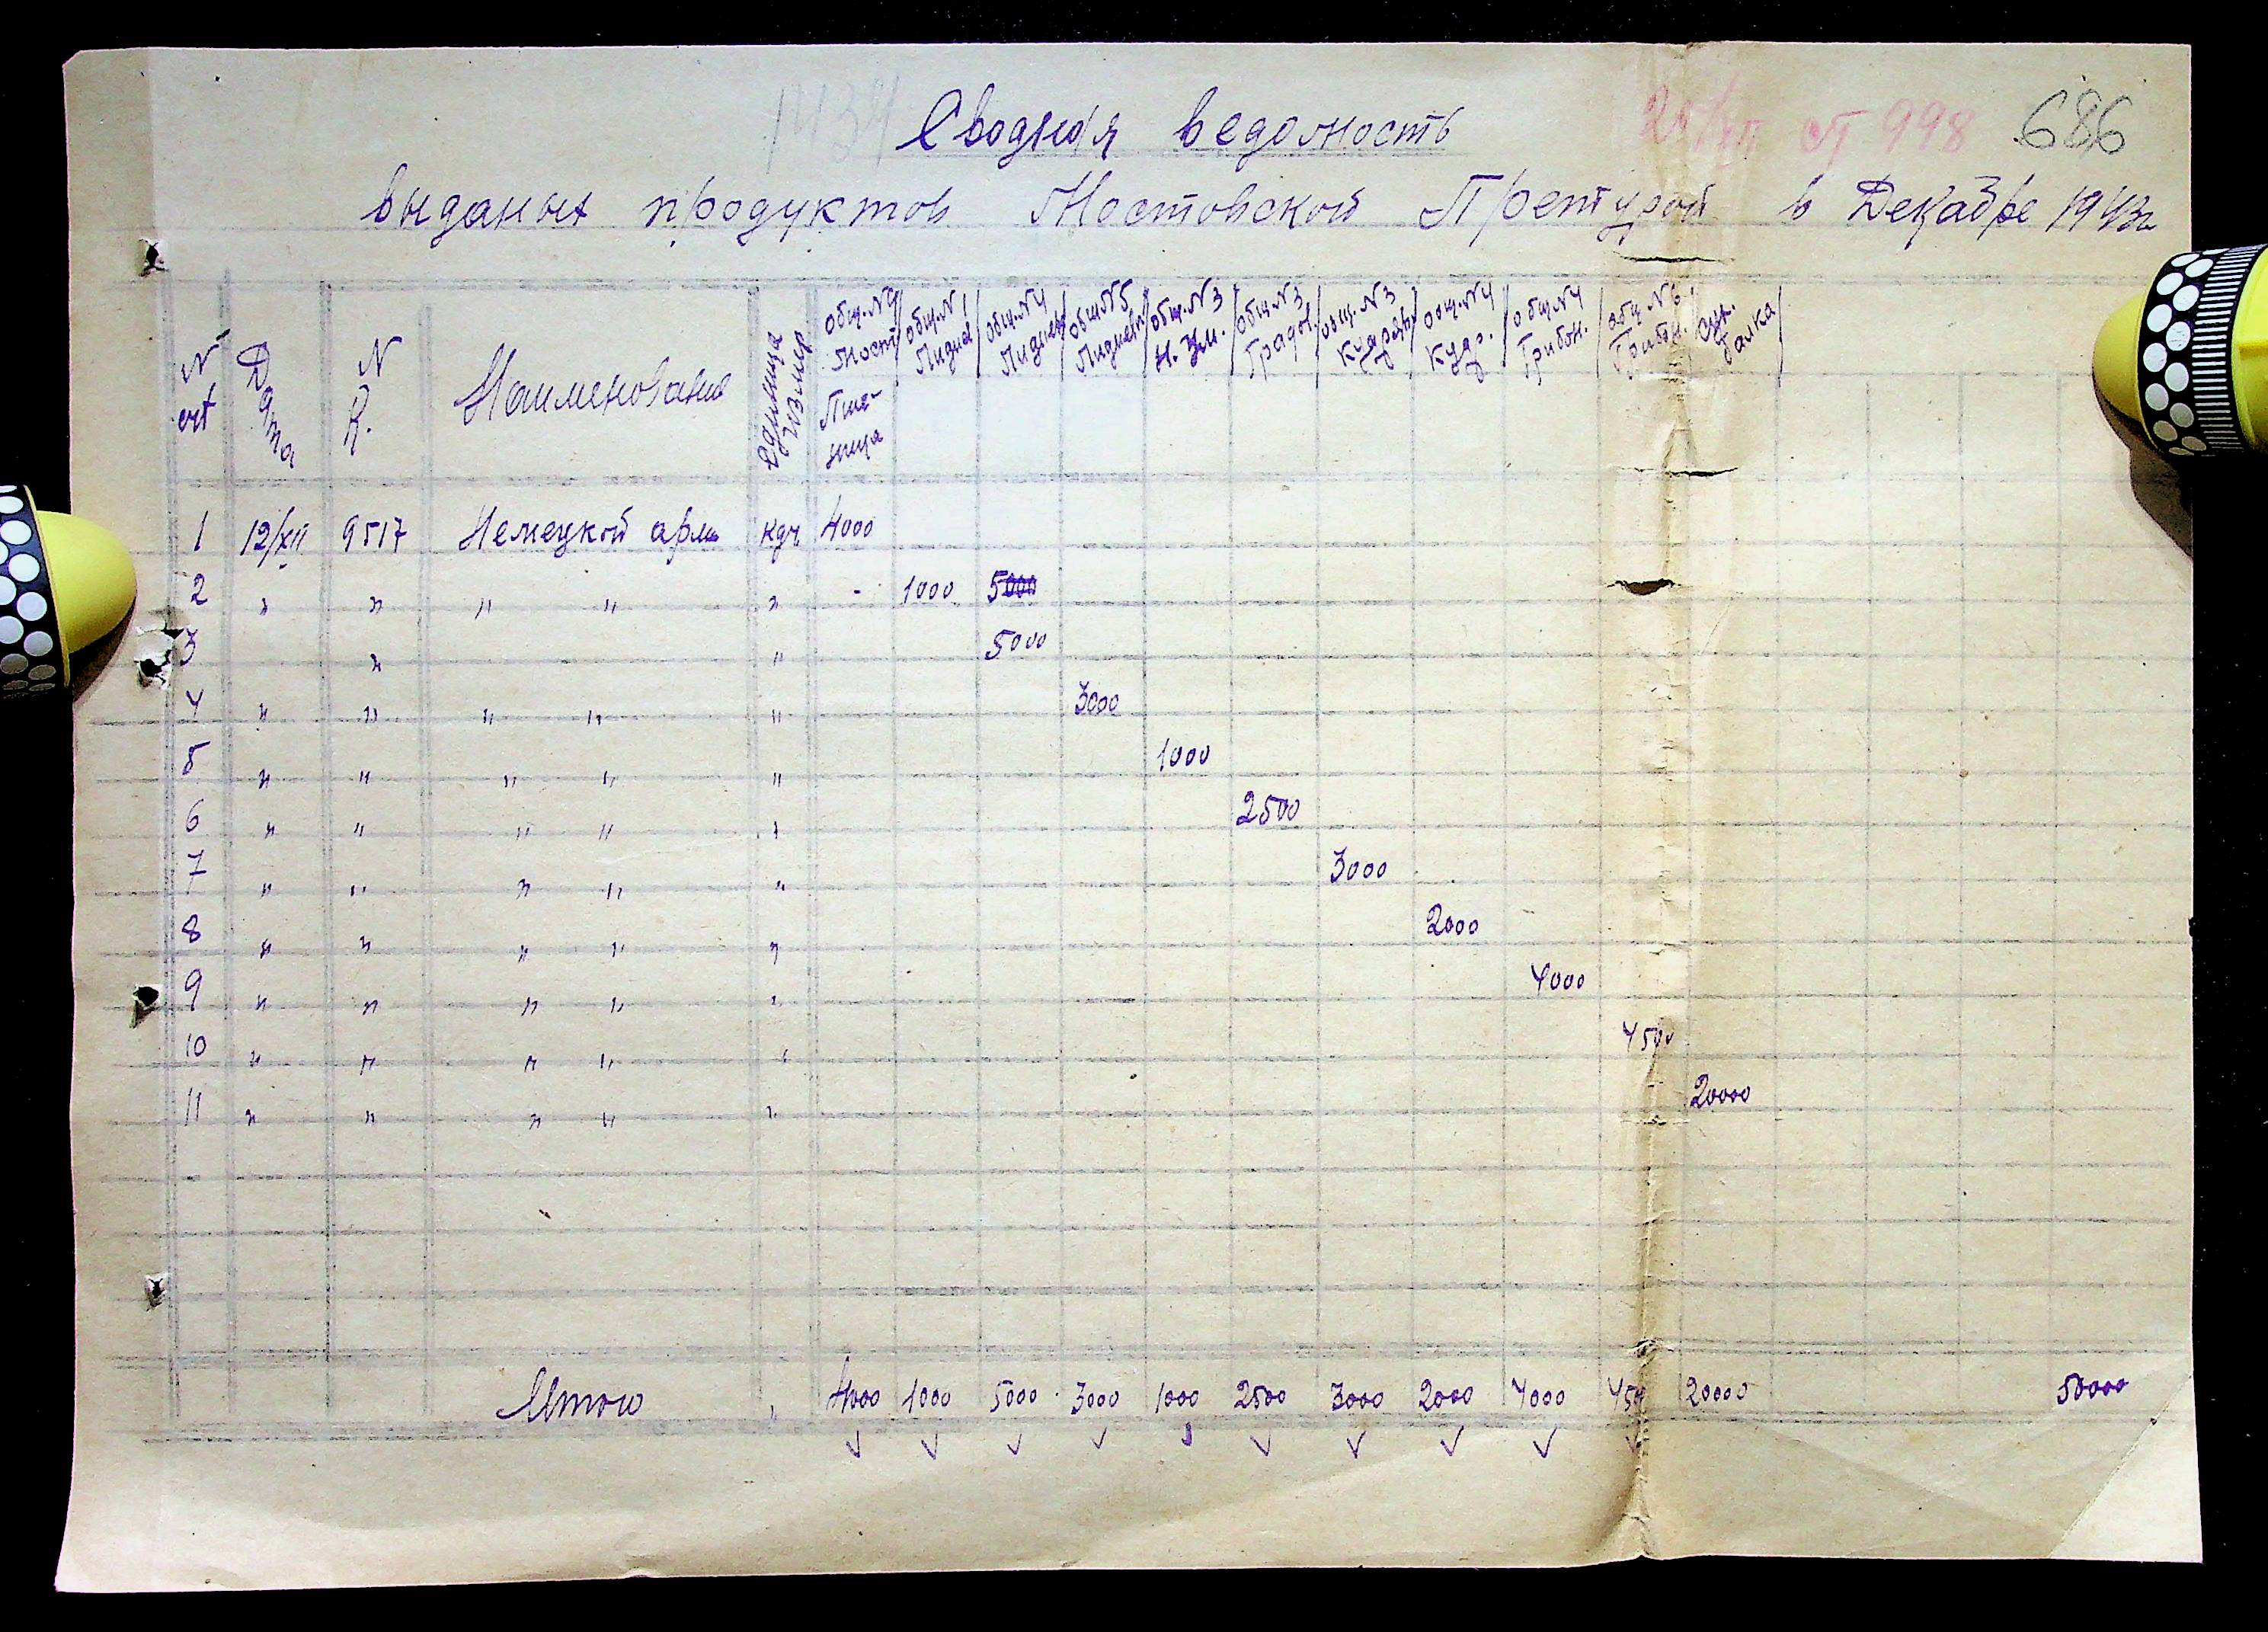 1434
20/XII СТ 998
686
Сводная ведомость
выданых продуктов Мостовской Претурой в Декабре 1943г
N сч
Дата
N R.
Наименование
Единица измер
общ. N9 Мост Пше-ница
общ. N1
общ. N4
общ. N5
общ. N3 Н. Ум.
общ. N3 Градов.
общ. N3 Кудряв
общ. N4 Кудр.
общ. N4 Грибон.
общ. N6 Грибон.
Сух. балка
1 12/XII 9517 Немецкой арми кдч 4000
2 " " " " " - 1000 5000
3 " " 5000
4 " " " " " 3000
5 " " " " " 1000
6 " " " " " 2500
7 " " " " " 3000
8 " " " " " 2000
9 " " " " " 4000
10 " " " " " 4500
11 " " " " " 20000
Итого " 4000 1000 5000 3000 1000 2500 3000 2000 4000 450 20000 50000